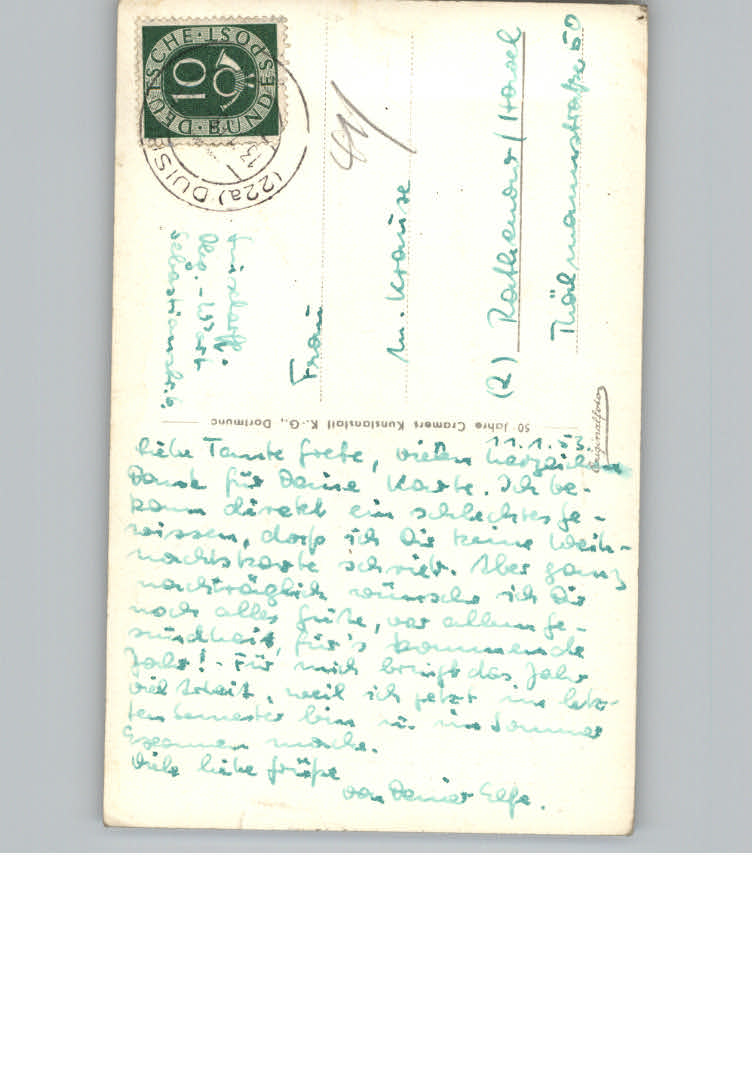 11.1.53.
Liebe Tante Grete, vielen herzlichen
Dank für Deine Karte. Ich be-
kam direkt ein schlechtes Ge-
wissen, daß ich Dir keine Weih-
nachtskarte schrieb. Aber ganz
nachträglich wünsche ich Dir
noch alles Gute, vor allem Ge-
sundheit, für's kommende
Jahr! - Für mich bringt das Jahr
viel Arbeit, weil ich jetzt im letz-
ten Semester bin u. im Sommer
Examen mache.
Viele liebe Grüße
von Deiner Elfe.
50 Jahre Cramers Kunstanstalt K.-G., Dortmund
Originalfoto
DEUTSCHE BUNDESPOST
10
(22a) DUISB
Sebastianstr. 6
Frau
M. Krause
(2) Rathenow / Havel
Thälmannstraße 50